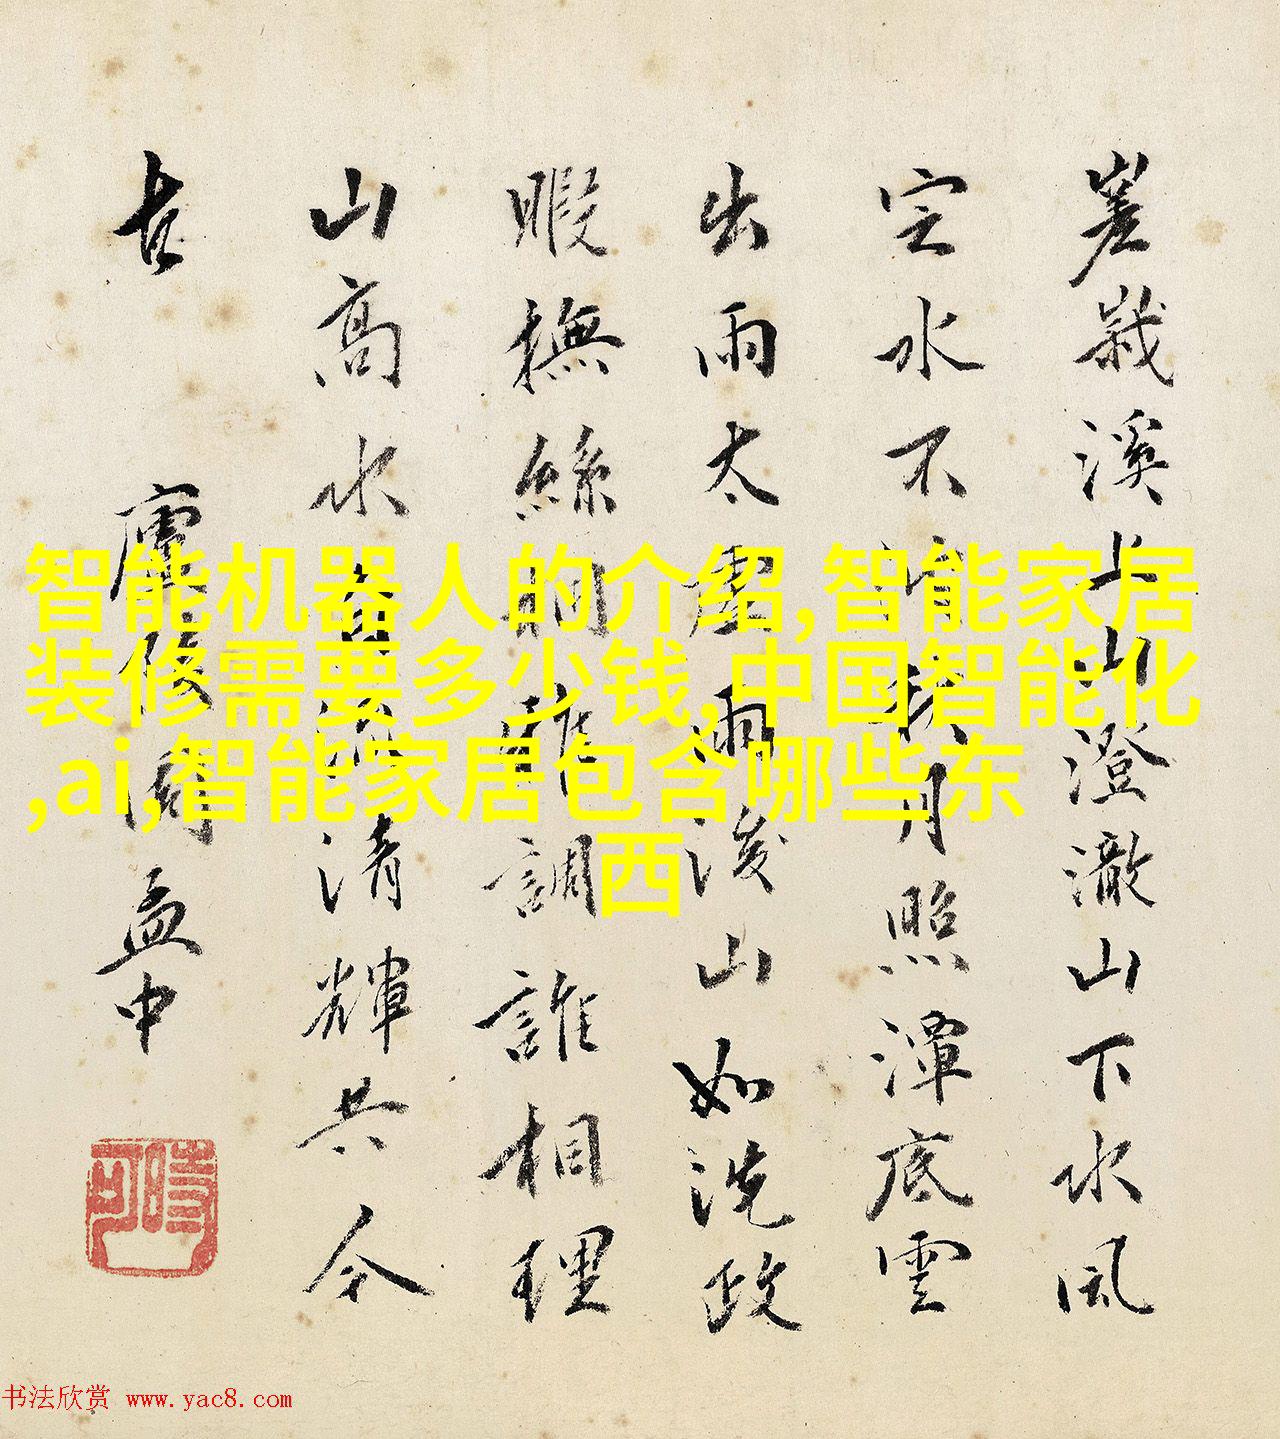 嵳峩溪上山澄澈山下水風
定水不月照潭底雲
出雨太虛雨後山如洗政
暇撫絲桐雅調誰相理
山高水清輝共今
古 廬陵周孟中
時可
智能机器人的介绍,智能家居
装修需要多少钱,中国智能化
,ai,智能家居包含哪些东
西
书法欣赏 www.yac8.com